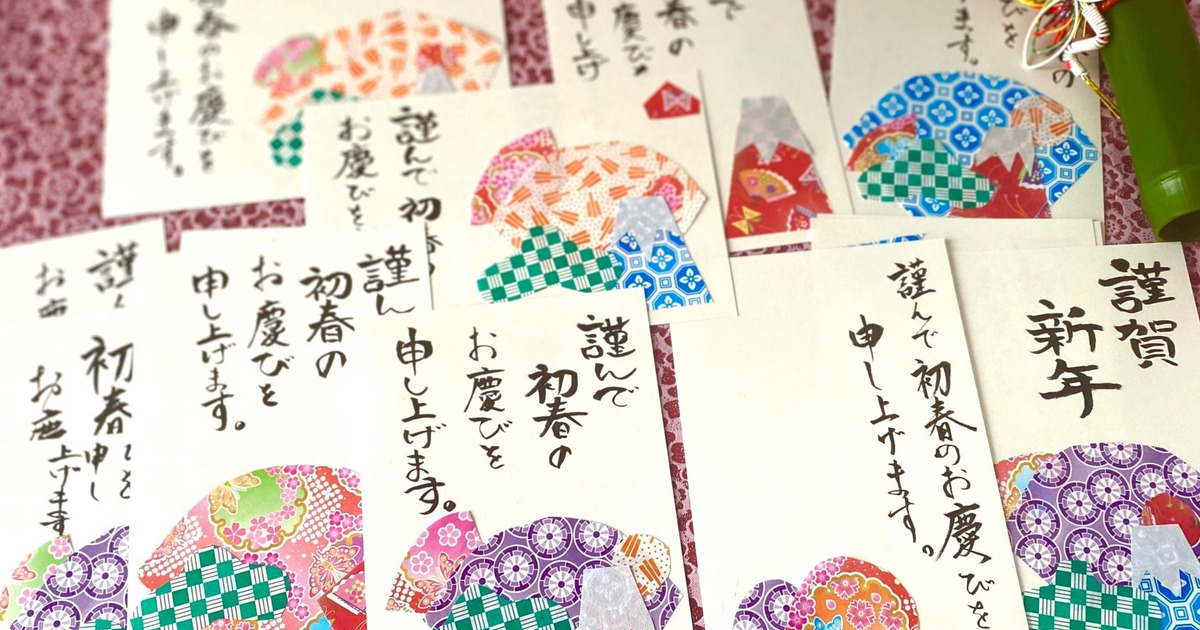 春のお慶びを
申し上げます。
で
春の
慶び
申し上げ
びを
の
ます。
謹んで初春
お慶びを
謹
お
初春
を
お
申し
上げます
謹ん
初春の
お慶びを
申し上げます。
謹んで
初春の
お慶びを
申し上げます。
謹んで初春のお慶びを
申し上げます。
謹賀
新年